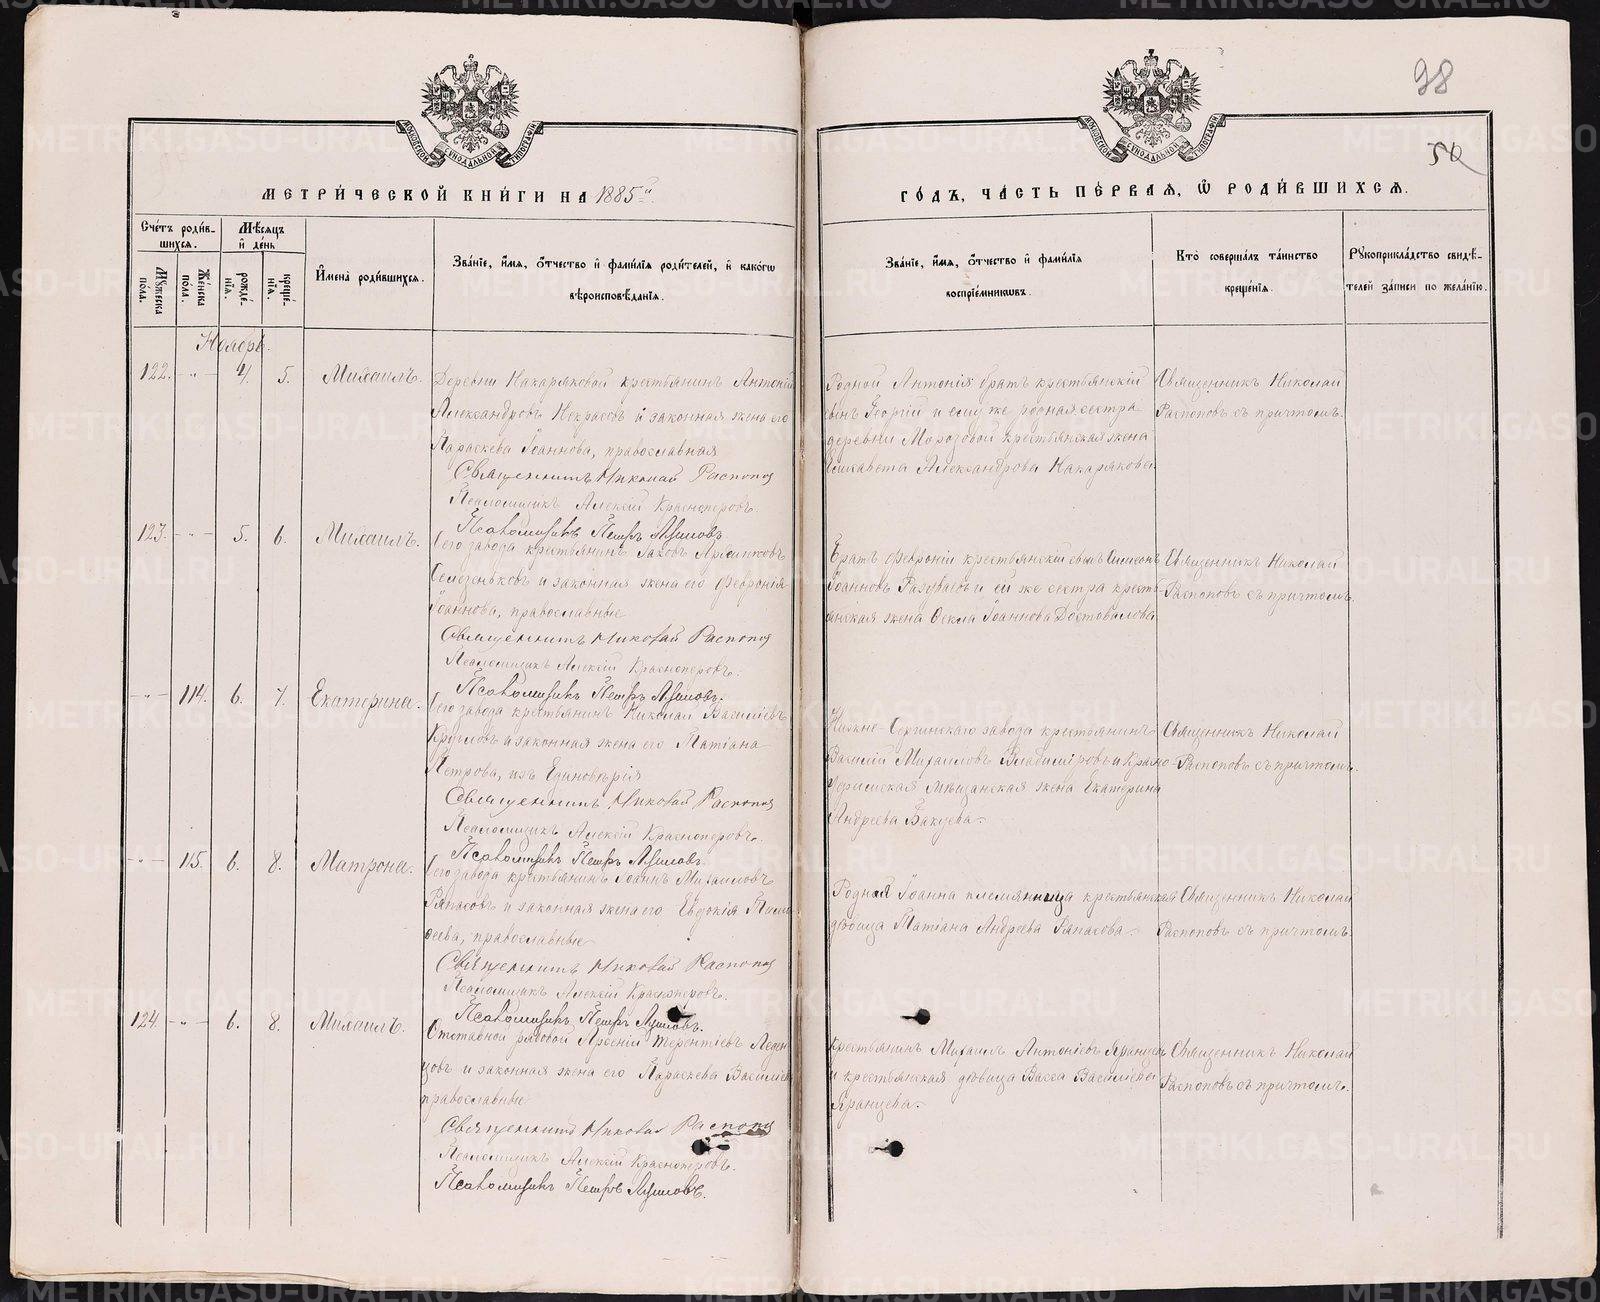 98
50
МЕТРИ́ЧЕСКОЙ КНИ́ГИ НА 1885й
ГО́ДЪ, ЧА́СТЬ ПЕ́РВАЯ, Ѡ РОДИ́ВШИХСЯ.
Сче́тъ роди́в-
шихся.
Мꙋжеска
по́ла.
Же́нска
по́ла.
Мѣ́сяцъ
и де́нь
рожде́-
нїя.
креще́-
нїя.
И҆мена̀ роди́вшихся.
Зва́нїе, и҆́мя, ѻ҆́тчество и҆ фами́лїя роди́телей, и҆ како́гѡ
вѣроисповѣ́данїя.
Зва́нїе, и҆́мя, ѻ҆́тчество и҆ фами́лїя
воспрїе́мникѡвъ.
Кто̀ соверша́лъ та́инство
креще́нїя.
Рꙋкоприкла́дство свидѣ́-
телей за́писи по жела́нїю.
Ноябрь.
122. - " - 4. 5. Михаилъ.
Деревни Накаряковой крестьянинъ Антоній
Александровъ Некрасовъ и законная жена его
Параскева Іоаннова, православная
Священникъ Николай Распопов
Псаломщикъ Алексій Красноперовъ.
Псаломщикъ Петръ
Родной Антонія братъ крестьянскій
сынъ Георгій и ему же родная сестра
деревни Морозовой крестьянская жена
Елизавета Александрова Накарякова
Священникъ Николай
Распоповъ съ причтомъ.
123. - " - 5. 6. Михаилъ.
Сего завода крестьянинъ Іаковъ
и законная жена его Февронія
Іоаннова, православные
Священникъ Николай Распопов
Псаломщикъ Алексій Красноперовъ.
Псаломщикъ Петръ
Братъ Февроніи крестьянскій сынъ Симеонъ
Іоанновъ и ей же сестра кресть-
янская жена Ѳекла Іоаннова Достовалова
Священникъ Николай
Распоповъ съ причтомъ.
- " - 114. 6. 7. Екатерина.
Сего завода крестьянинъ Николай Василіевъ
и законная жена его Татіана
Петрова, изъ Единовѣрія
Священникъ Николай Распопов
Псаломщикъ Алексій Красноперовъ.
Псаломщикъ Петръ
Нижне-Сергинскаго завода крестьянинъ
Василій Михаиловъ Владиміровъ и Красно-
уфимская мѣщанская жена Екатерина
Андреева
Священникъ Николай
Распоповъ съ причтомъ.
- " - 115. 6. 8. Матрона.
Сего завода крестьянинъ Іоаннъ Михаиловъ
Ряпасовъ и законная жена его Евдокія Тимо-
ѳеева, православные
Священникъ Николай Распопов
Псаломщикъ Алексій Красноперовъ.
Псаломщикъ Петръ
Родная Іоанна племянница крестьянская
дѣвица Татіана Андреева Ряпасова
Священникъ Николай
Распоповъ съ причтомъ.
124. - " - 6. 8. Михаилъ.
Отставной рядовой Арсеній Терентіевъ Леден-
цовъ и законная жена его Параскева Василіева
православные
Священникъ Николай Распопов
Псаломщикъ Алексій Красноперовъ.
Псаломщикъ Петръ
Крестьянинъ Михаилъ Антоніевъ Яранцевъ
и крестьянская дѣвица Васса Василіева
Яранцева.
Священникъ Николай
Распоповъ съ причтомъ.